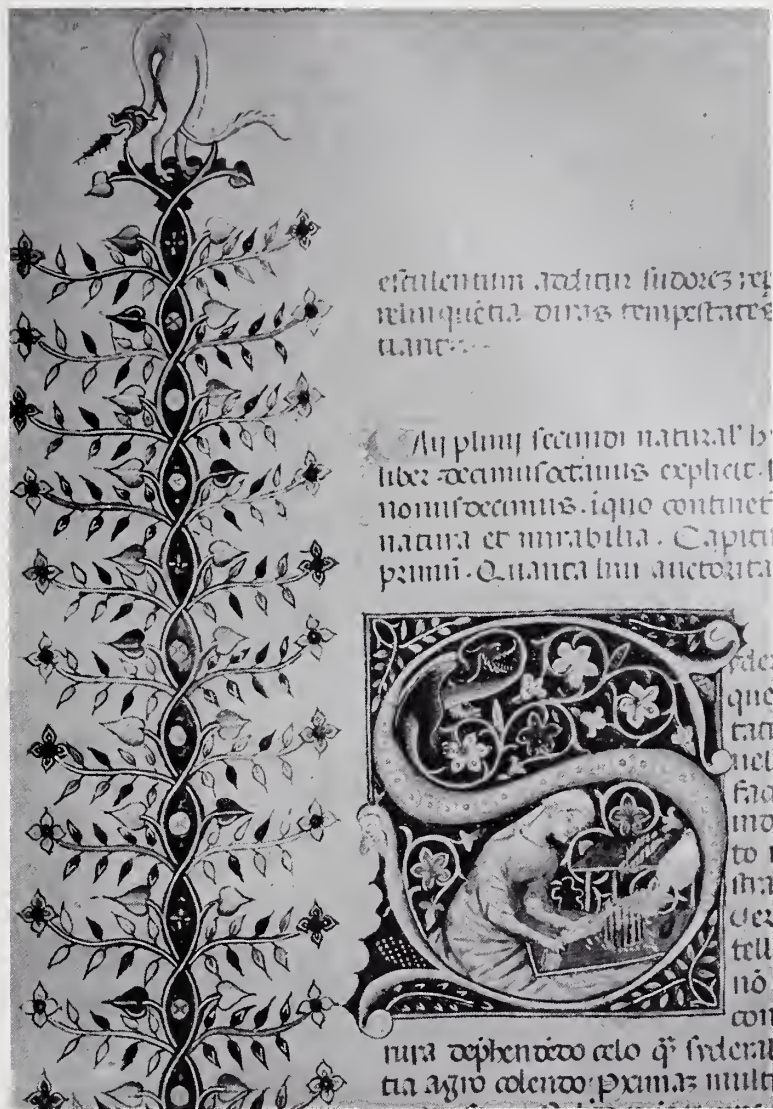 esculentum additur sudorez rep
relinquētia diras tempestates
tiant
Aij plinij secundi natural' hy
liber decimusoctauus explicit.
nonusdecimus. iquo continet
natura et mirabilia. Capitu
primū. Quanta lini auctorita
S yder
que
tati
uel
fac
mo
to
stra
der
tell
nō
con
nira dephendēdo celo q̄ syderal
tia agro colendo. Pximaz multi